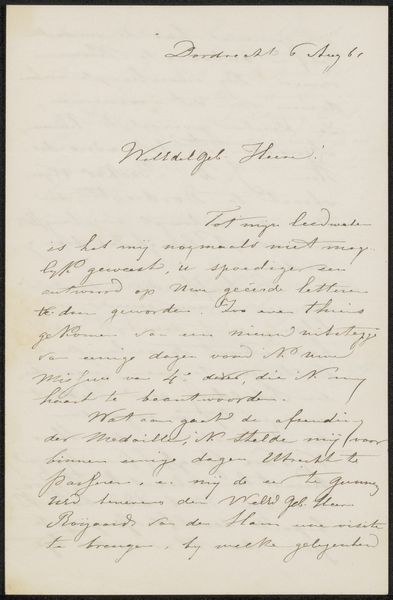 Dordrecht 6 Aug 61
WelEdelGeb. Heer!
Tot mijn leedwezen
is het mij nogmaals niet mog-
lijk geweest, u spoediger een
antwoord op Uwe geëerde letteren
te doen geworden. Zoo even thuis
gekomen van een nieuw uitstapje
van eenige dagen vond ik uwe
Missive van 4. dezer, die ik mij
haast te beantwoorden.
Wat aangaat de afzending
der Medaille, ik stelde mij voor
binnen eenige dagen Utrecht te
passeren, en mij de eer te gunnen
UEd benevens den WelEd Geb. Heer
Roijaards van den Ham een visite
te brengen, bij welke gelegenheid